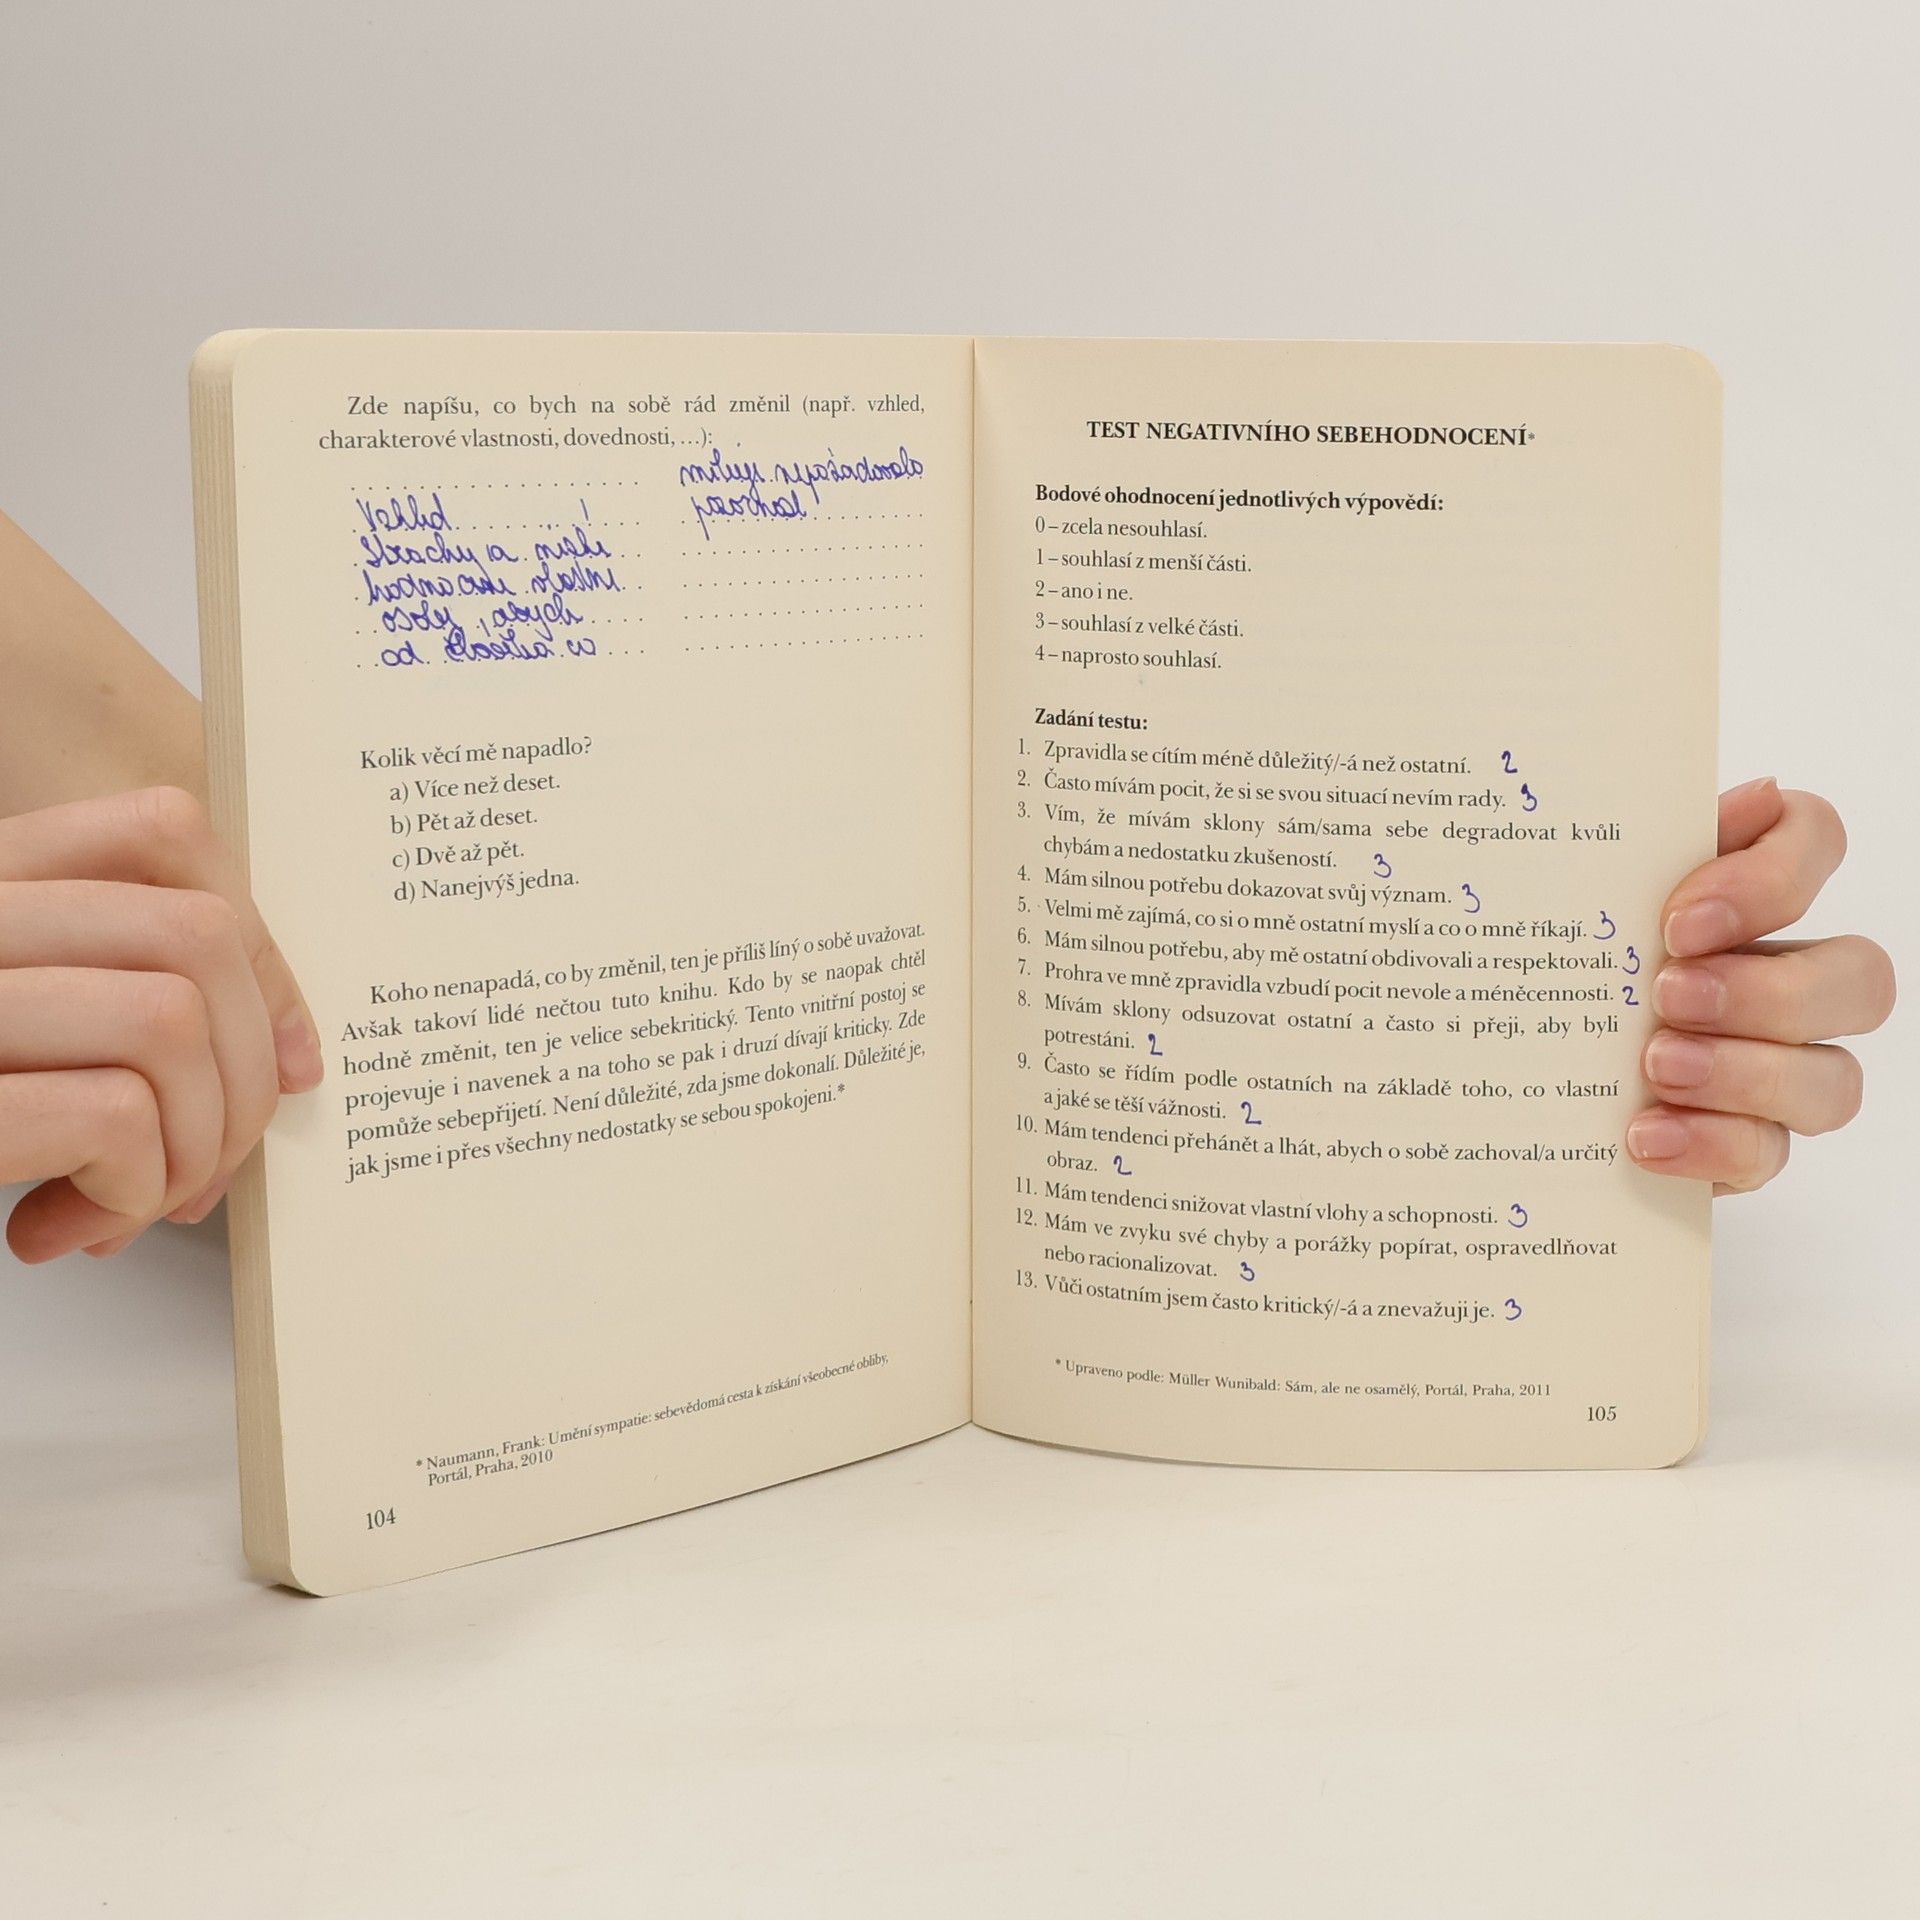 Zde napíšu, co bych na sobě rád změnil (např. vzhled,
charakterové vlastnosti, dovednosti, …):
miluji nepožadovala
Vzhled !
pozornost
Strachy a nízké
hodnocení vlastní
osoby, abych
od člověka co
Kolik věcí mě napadlo?
a) Více než deset.
b) Pět až deset.
c) Dvě až pět.
d) Nanejvýš jedna.
Koho nenapadá, co by změnil, ten je příliš líný o sobě uvažovat.
Avšak takoví lidé nečtou tuto knihu. Kdo by se naopak chtěl
hodně změnit, ten je velice sebekritický. Tento vnitřní postoj se
projevuje i navenek a na toho se pak i druzí dívají kriticky. Zde
pomůže sebepřijetí. Není důležité, zda jsme dokonalí. Důležité je,
jak jsme i přes všechny nedostatky se sebou spokojeni.*
* Naumann, Frank: Umění sympatie: sebevědomá cesta k získání všeobecné obliby,
Portál, Praha, 2010
104
TEST NEGATIVNÍHO SEBEHODNOCENÍ*
Bodové ohodnocení jednotlivých výpovědí:
0 – zcela nesouhlasí.
1 – souhlasí z menší části.
2 – ano i ne.
3 – souhlasí z velké části.
4 – naprosto souhlasí.
Zadání testu:
1. Zpravidla se cítím méně důležitý/-á než ostatní. 2
2. Často mívám pocit, že si se svou situací nevím rady. 3
3. Vím, že mívám sklony sám/sama sebe degradovat kvůli
chybám a nedostatku zkušeností. 3
4. Mám silnou potřebu dokazovat svůj význam. 3
5. Velmi mě zajímá, co si o mně ostatní myslí a co o mně říkají. 3
6. Mám silnou potřebu, aby mě ostatní obdivovali a respektovali. 3
7. Prohra ve mně zpravidla vzbudí pocit nevole a méněcennosti. 2
8. Mívám sklony odsuzovat ostatní a často si přeji, aby byli
potrestáni. 2
9. Často se řídím podle ostatních na základě toho, co vlastní
a jaké se těší vážnosti. 2
10. Mám tendenci přehánět a lhát, abych o sobě zachoval/a určitý
obraz. 2
11. Mám tendenci snižovat vlastní vlohy a schopnosti. 3
12. Mám ve zvyku své chyby a porážky popírat, ospravedlňovat
nebo racionalizovat. 3
13. Vůči ostatním jsem často kritický/-á a znevažuji je. 3
* Upraveno podle: Müller Wunibald: Sám, ale ne osamělý, Portál, Praha, 2011
105